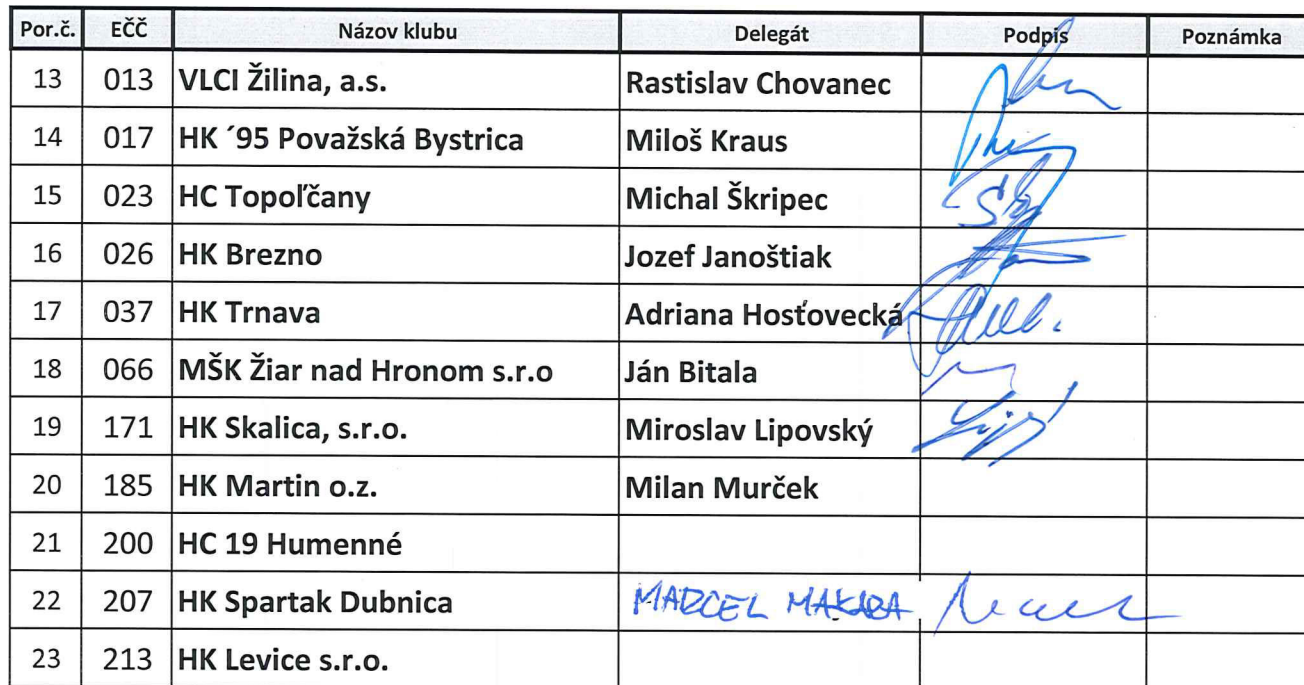 Por.č. EČČ Názov klubu Delegát Podpis Poznámka
13 013 VLCI Žilina, a.s. Rastislav Chovanec
14 017 HK ´95 Považská Bystrica Miloš Kraus
15 023 HC Topoľčany Michal Škripec
16 026 HK Brezno Jozef Janoštiak
17 037 HK Trnava Adriana Hosťovecká
18 066 MŠK Žiar nad Hronom s.r.o Ján Bitala
19 171 HK Skalica, s.r.o. Miroslav Lipovský
20 185 HK Martin o.z. Milan Murček
21 200 HC 19 Humenné
22 207 HK Spartak Dubnica MARCEL MAKARA
23 213 HK Levice s.r.o.